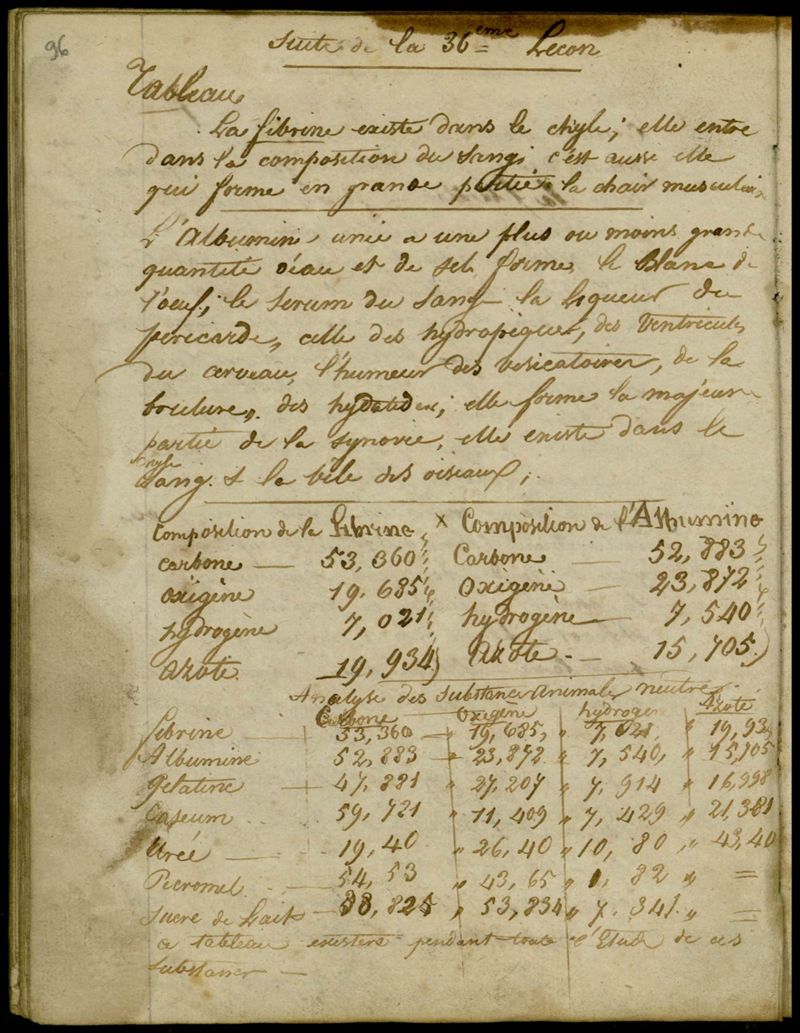 96
Suite de la 36eme Lecon
Tableau
La fibrine existe dans le chyle; elle entre
dans la composition du sang; c'est aussi elle
qui forme en grande partie la chair musculaire
L'Albumine unie a une plus ou moins grande
quantite d'eau et de sel forme le Blanc de
l'oeuf; le serum du sang la liqueur du
pericarde, celle des hydropiques, des Ventricules
du cerveau, l'humeur des vesicatoires, de la
brulure, des hydatides; elle forme la majeure
partie de la synovie, elle existe dans le
chyle
sang. & la bile des oiseaux;
Composition de la fibrine x Composition de l'Albumine
carbone — 53,360 Carbone — 52,883
oxigène 19,685 Oxigène — 23,872
hydrogène 7,021 hydrogène — 7,540
azote 19,934 Azote — 15,705
Analyse des Substances Animales neutres
Carbone Oxigène hydrogen Azote
fibrine — 53,360 — 19,685, " 7,021, " 19,934
Albumine 52,883 — 23,872 " 7,540, " 15,705
Gelatine — 47,881 " 27,207 " 7,914 " 16,998
Caseum 59,721 " 11,409 " 7,429 " 21,381
Urée — 19,40 " 26,40 " 10,80 " 43,40
Picromel — 54,53 " 43,65 " 1,82 " =
Sucre de Lait — 38,825 " 53,834 " 7,341. " =
ce tableau existera pendant toute l'Etude de ces
substances —